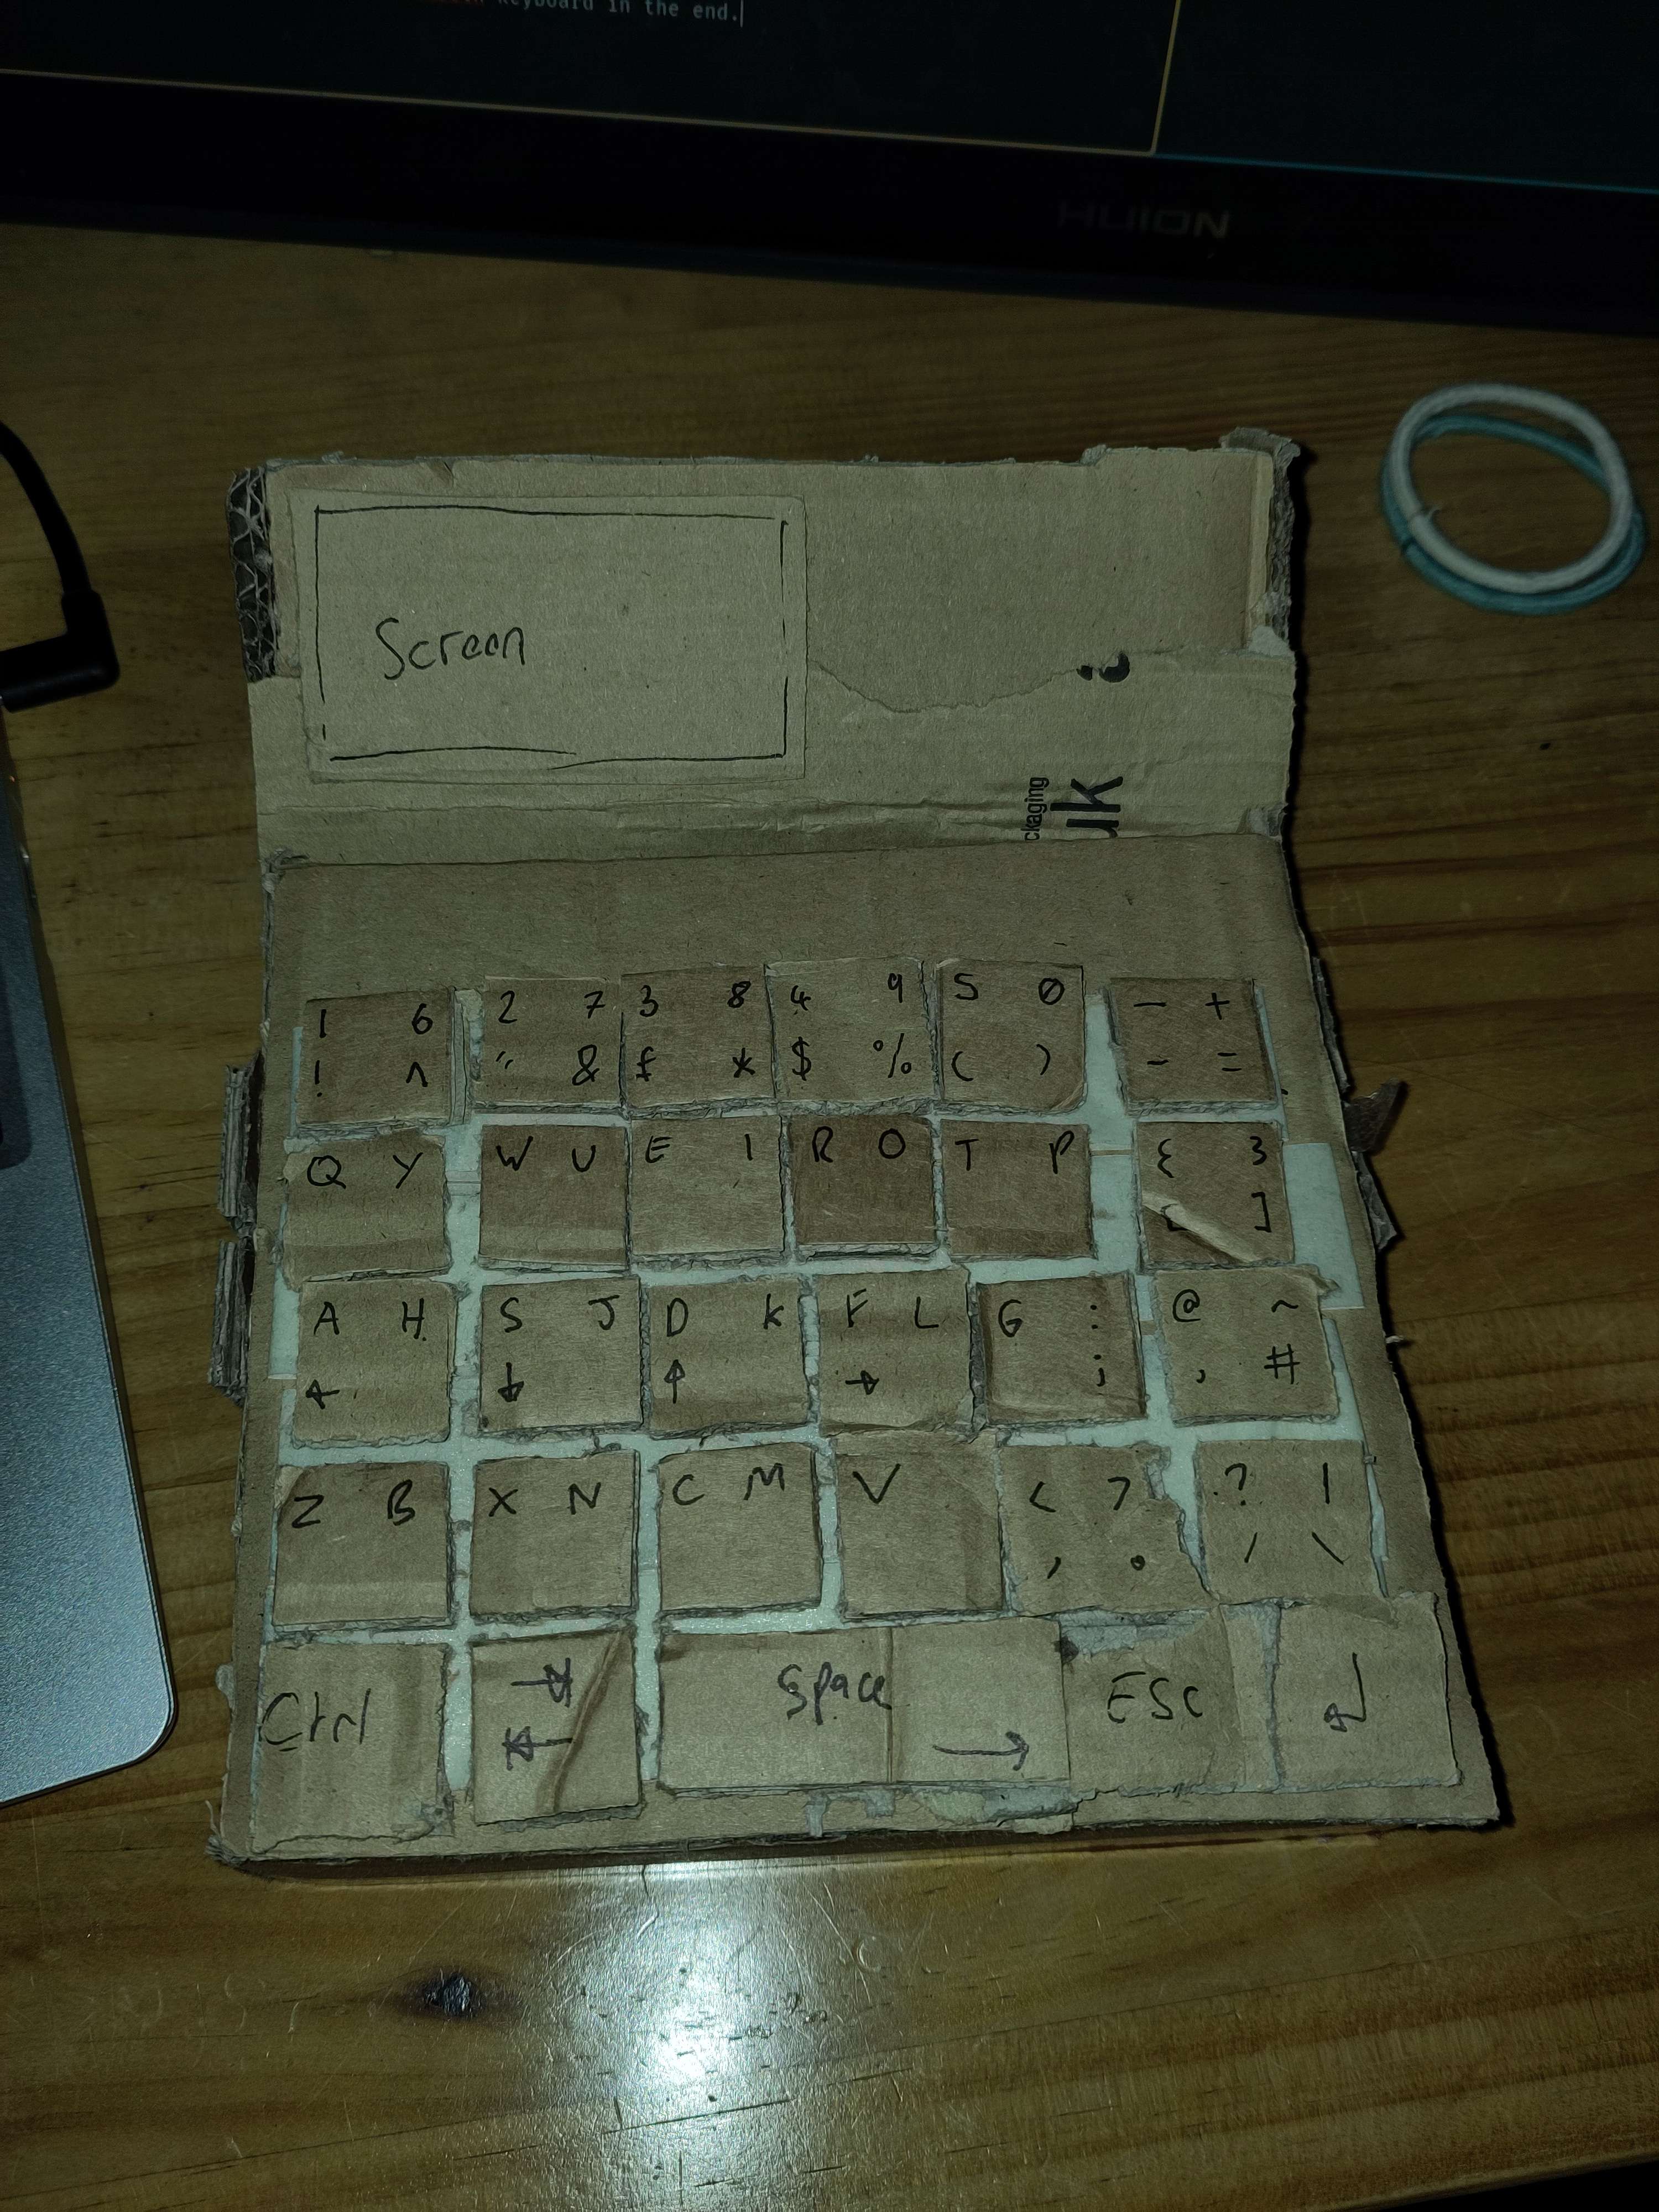 keyboard in the end.
HUION
Screen
ckaging
uk
1 6 2 7 3 8 4 9 5 0 - +
! ^ " & £ * $ % ( ) - =
Q Y W U E I R O T P { }
[ ]
A H S J D K F L G : @ ~
← ↓ ↑ → ; , #
Z B X N C M V < > ? |
, . / \
Ctrl ⇥ Space ESC ↵
⇤ →